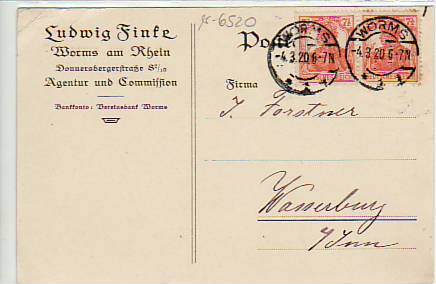 gr-6520
Ludwig Finke
Worms am Rhein
Donnersbergerstraße 8²/₁₀
Agentur und Commission
Bankkonto: Vereinsbank Worms
Postk
7½
WORMS
-4.3.20.6-7N
WORMS
-4.3.20.6-7N
Firma
J. Forstner
Wasserburg
a/Inn